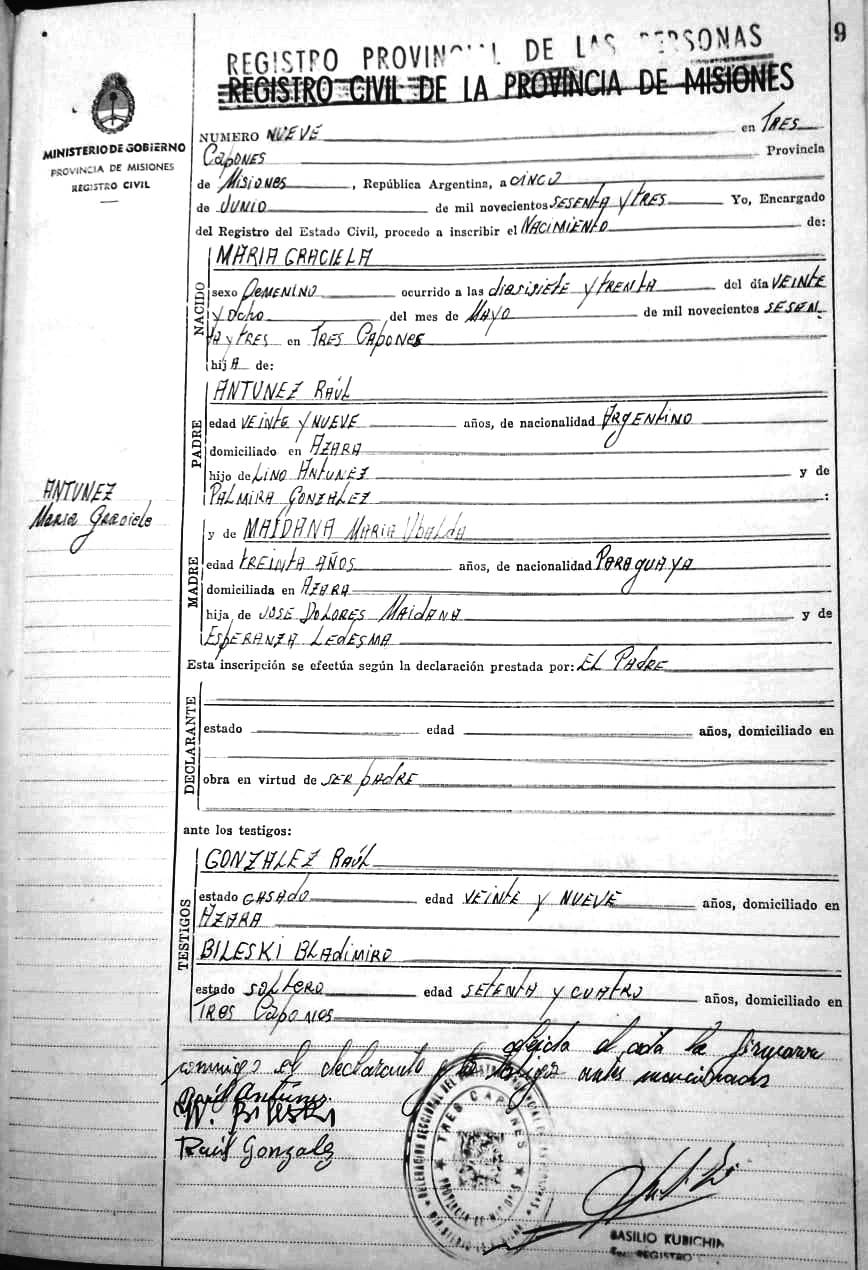 9
REGISTRO PROVINCIAL DE LAS PERSONAS
REGISTRO CIVIL DE LA PROVINCIA DE MISIONES
MINISTERIO DE GOBIERNO
PROVINCIA DE MISIONES
REGISTRO CIVIL
NUMERO NUEVE en TRES
CAPONES Provincia
de MISIONES, República Argentina, a CINCO
de JUNIO de mil novecientos SESENTA Y TRES Yo, Encargado
del Registro del Estado Civil, procedo a inscribir el NACIMIENTO de:
NACIDO
MARIA GRACIELA
sexo FEMENINO ocurrido a las diesisiete y TRENTA del día VEINTE
Y OCHO del mes de MAYO de mil novecientos SESEN
TA y TRES en TRES CAPONES
hijA de:
PADRE
ANTUNEZ RAÚL
edad VEINTE Y NUEVE años, de nacionalidad ARGENTINO
domiciliado en AZARA
hijo de LINO ANTUNEZ y de
PALMIRA GONZALEZ :
ANTUNEZ
Maria Graciela
MADRE
y de MAIDANA MARIA UBALDA
edad TREINTA AÑOS años, de nacionalidad PARAGUAYA
domiciliada en AZARA
hija de JOSE DOLORES MAIDANA y de
ESPERANZA LEDESMA
Esta inscripción se efectúa según la declaración prestada por: EL PADRE
DECLARANTE
estado edad años, domiciliado en
obra en virtud de SER PADRE
ante los testigos:
TESTIGOS
GONZALEZ RAÚL
estado CASADO edad VEINTE Y NUEVE años, domiciliado en
AZARA
BILESKI BLADIMIRO
estado SOLTERO edad SETENTA Y CUATRO años, domiciliado en
TRES CAPONES
el acta la firmaron
conmigo el declarante y antes mencionados
Raúl Antúnez
W. Bileski
Raúl Gonzalez
TRES CAPONES
PROVINCIA DE MISIONES
BASILIO KUBICHIN
REGISTRO